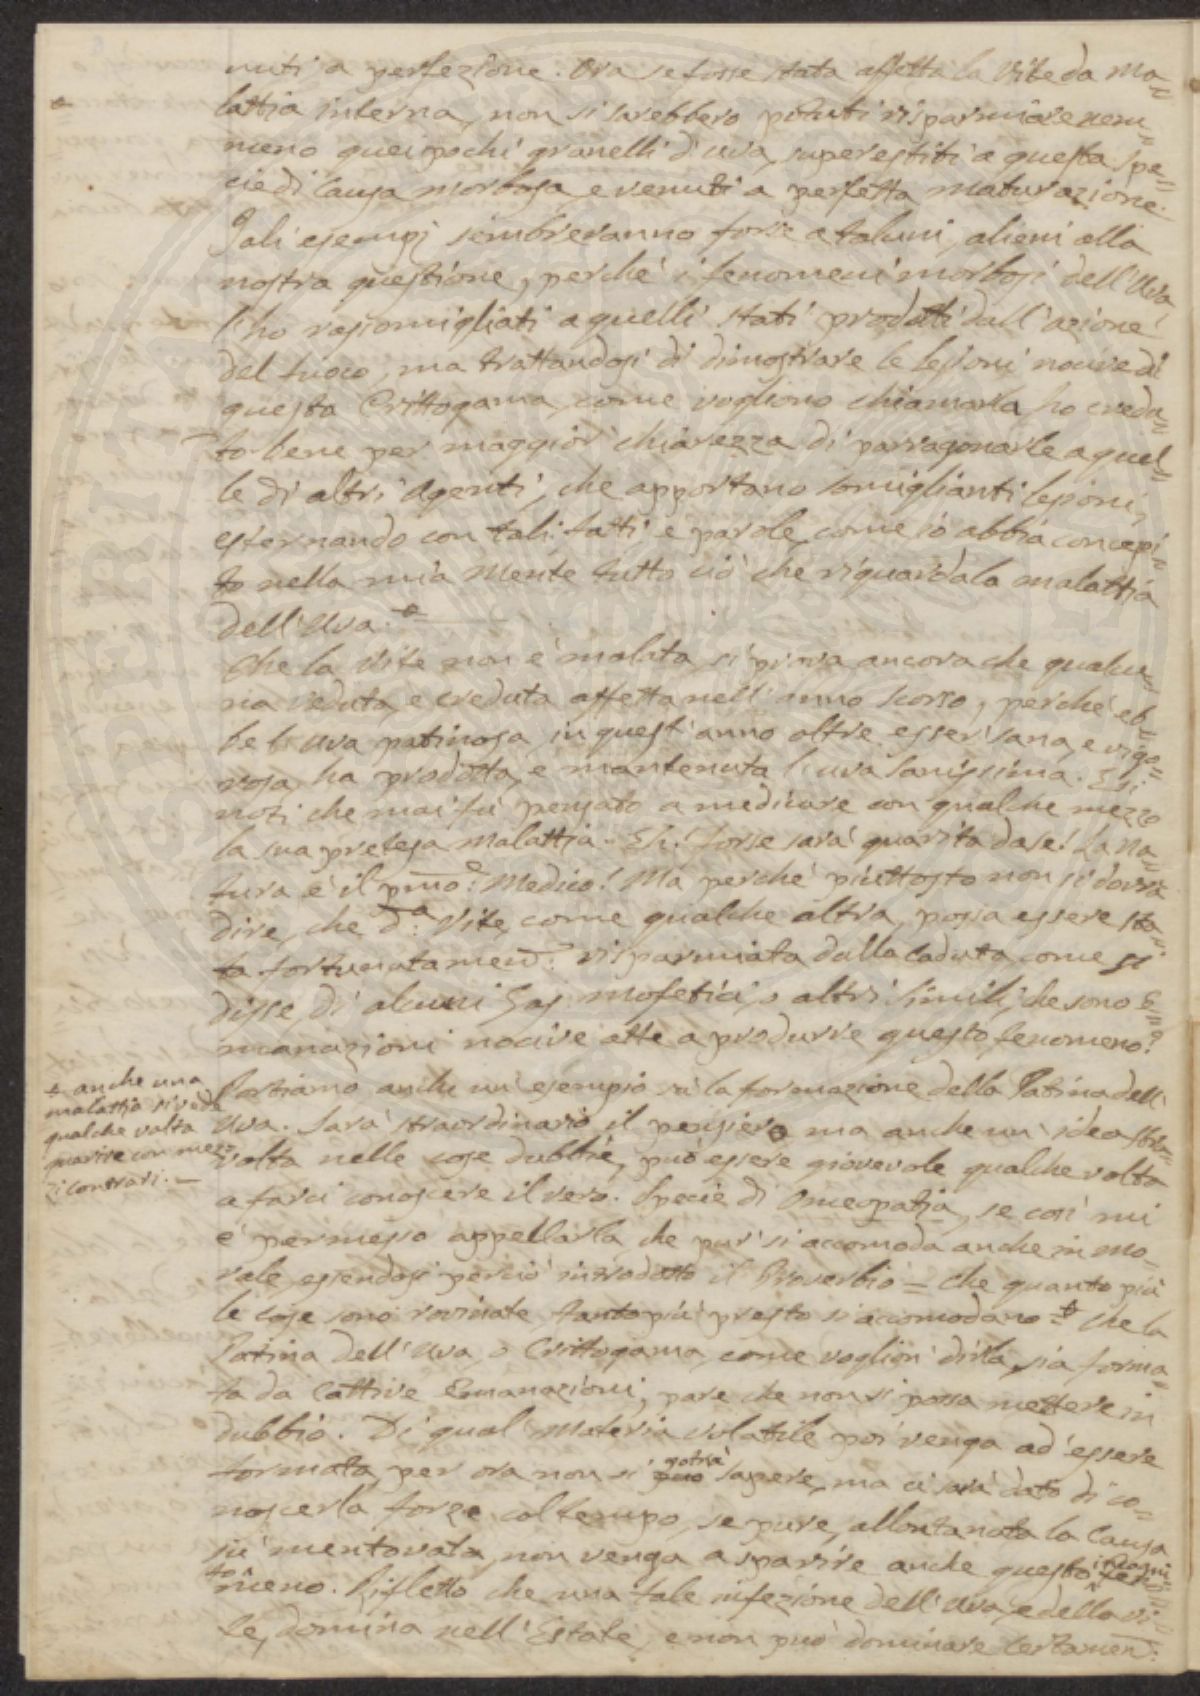 nuti a perfezione. Ora se fosse stata affetta la Vite da ma=
lattia interna, non si sarebbero potuti risparmiare nem=
meno quei pochi granelli d'uva, superestiti a questa spe=
cie di causa morbosa, e venuti a perfetta maturazione.
Tali esempj sembreranno forse a taluni, alieni alla
nostra questione, perchè i fenomeni morbosi dell'Uva,
l'ho rassomigliati a quelli stati prodotti dall'azione
del fuoco, ma trattandosi di dimostrare le lesioni nocive di
questa Crittogama, come vogliono chiamarla, ho credu=
to bene per maggior chiarezza di parragonarle a quel=
le di altri Agenti, che apportano somiglianti lesioni,
esternando con tali fatti e parole, come io abbia concepi=
to nella mia Mente tutto ciò che riguarda la malattia
dell'Uva.
Che la Vite non è malata, si prova ancora che qualcu=
na veduta, e creduta affetta nell'anno scorso, perchè eb=
be l'Uva patinosa, in quest'anno oltre esser sana, e vigo=
rosa, ha prodotta, e mantenuta l'uva sanissima. E si
noti che mai fù pensato a medicare con qualche mezzo
la sua pretesa malattia. Eh! forse sarà guarita da se! La Na=
tura è il pmo: Medico! Ma perchè piuttosto non si dovrà
dire, che d:a Vite, come qualche altra, possa essere sta=
ta fortunatamen: risparmiata dalla caduta, come si
disse, di alcuni Gas mofetici, o altri simili, che sono E=
manazioni nocive atte a produrre questo fenomeno?
Portiamo anche un'esempio sù la formazione della Patina dell'
Uva. Sarà straordinario il pensiero, ma anche un'idea stra=
volta nelle cose dubbie, può essere giovevole qualche volta
a farci conoscere il vero. Specie di Omeopatia, se così mi
è permesso appellarla, che pur si accomoda anche in mo=
rale, essendosi perciò introdotto il Proverbio = che quanto più
le cose sono rovinate, tanto più presto si accomodano = Che la
Patina dell'Uva, o Crittogama, come voglion dirla, sia forma=
ta da Cattive Emanazioni, pare che non si possa mettere in
dubbio. Di qual Materia volatile poi venga ad'essere
formata, per ora non si potrà sapere, ma ci sarà dato di co=
noscerla forze col tempo, se pure, allontanata la Causa
sù mentovata, non venga a sparire anche questo
meno. Rifletto che una tale infezione dell'Uva, e della Vi=
te, domina nell'Estate, e non può dominare certamen:
anche una
malattia si vede
qualche volta
guarire con mez=
zi contrari. –